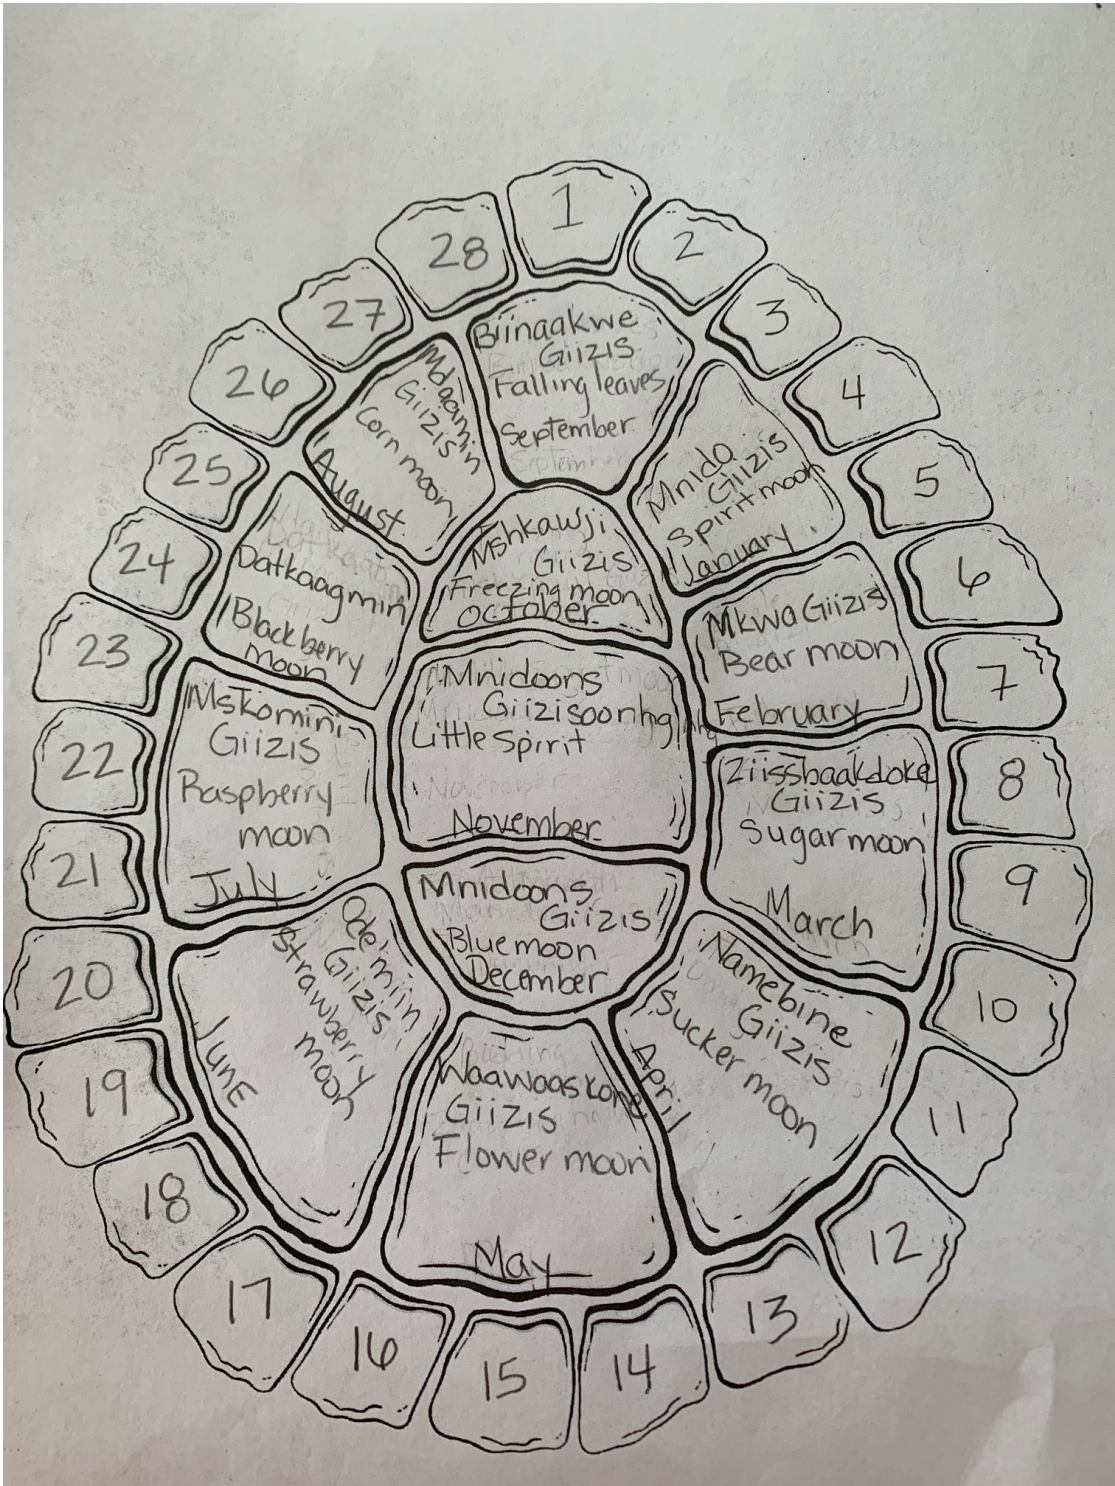 1
2
3
4
5
6
7
8
9
10
11
12
13
14
15
16
17
18
19
20
21
22
23
24
25
26
27
28
Biinaakwe
Giizis
Falling leaves
September
Mnido
Giizis
Spirit moon
January
Mkwa Giizis
Bear moon
February
Ziissbaakdoke
Giizis
Sugar moon
March
Namebine
Giizis
Sucker moon
April
Waawaaskone
Giizis
Flower moon
May
Ode'miin
Giizis
Strawberry
moon
JunE
Mskomini
Giizis
Raspberry
moon
July
Datkaagmin
Blackberry
moon
Mdaamin
Giizis
Corn moon
August
Mshkawji
Giizis
Freezing moon
October
Mnidoons
Little Spirit
November
Mnidoons
Giizis
Blue moon
December